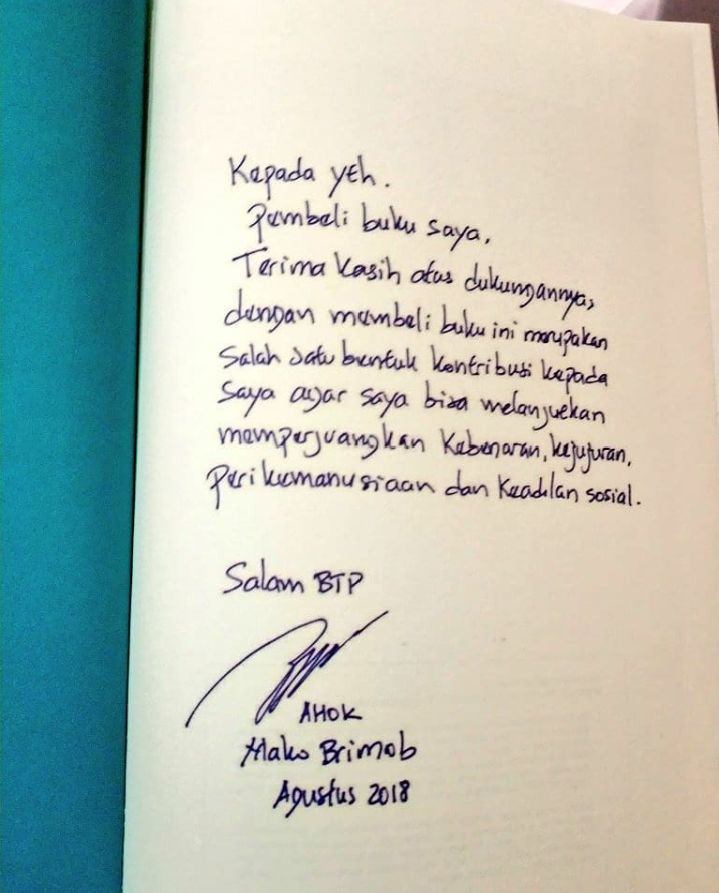 Kepada yth.
Pembeli buku saya,
Terima kasih atas dukungannya,
dengan membeli buku ini merupakan
Salah satu bentuk kontribusi kepada
Saya agar saya bisa melanjutkan
memperjuangkan Kebenaran, kejujuran,
Peri kemanusiaan dan Keadilan sosial.
Salam BTP
AHOK
Mako Brimob
Agustus 2018